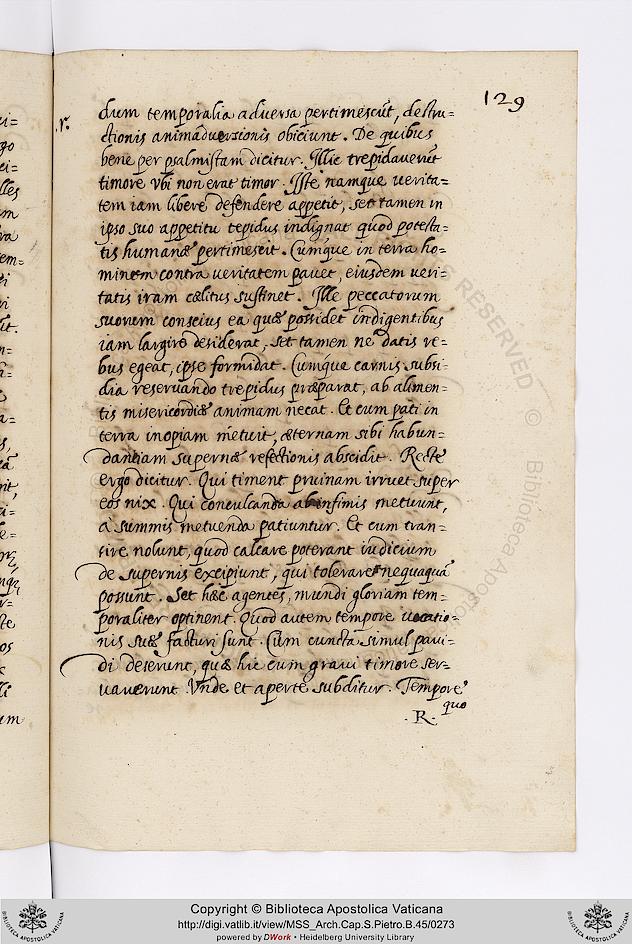 129
.r.
dum temporalia adversa pertimescūt, destru=
ctionis animadversionis obiciunt. De quibus
bene per psalmistam dicitur. Illic trepidaverūt
timore vbi non erat timor. Iste namque uerita=
tem iam libere defendere appetit, set tamen in
ipso suo appetitu tepidus indignat quod potesta=
tis humanę pertimescit. Cumque in terra ho=
minem contra veritatem pavet, eiusdem veri=
tatis iram cęlitus sustinet. Ille peccatorum
suorum conscius ea quę possidet indigentibus
iam largire desiderat, set tamen ne datis re=
bus egeat, ipse formidat. Cumque carnis subsi=
dia reseruando trepidus pręparat, ab alimen=
tis misericordię animam necat. Et cum pati in
terra inopiam metuit, æternam sibi habun=
dantiam supernę refectionis abscidit. Recte
ergo dicitur. Qui timent pruinam irruet super
eos nix. Qui conculcanda ab infimis metuunt,
a summis metuenda patiuntur. Et cum tran=
sire nolunt, quod calcare poterant iudicium
de supernis excipiunt, qui tolerare nequaquā
possunt. Set hæc agentes, mundi gloriam tem=
poraliter optinent. Quod autem tempore vocatio=
nis suę facturi sunt. Cum cuncta simul pavi=
di deserunt, quę hic cum gravi timore ser=
vaverunt Vnde et aperte subditur. Tempore
quo
.R.
RESERVED ©
Biblioteca Aposto
Copyright © Biblioteca Apostolica Vaticana
http://digi.vatlib.it/view/MSS_Arch.Cap.S.Pietro.B.45/0273
powered by DWork • Heidelberg University Library